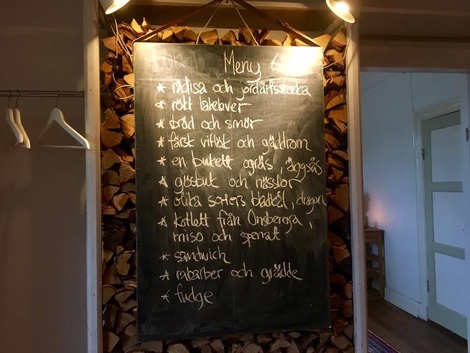 Meny 6
* rädisa och jordärtskocka
* rökt lakelever
* bröd och smör
* färsk vitlök och gäddrom
* en bukett ogräs, äggsås
* gösbuk och nässlor
* olika sorters bladkål, dragon
* kotlett från Onsberga,
miso och spenat
* sandwich
* rabarber och grädde
* fudge